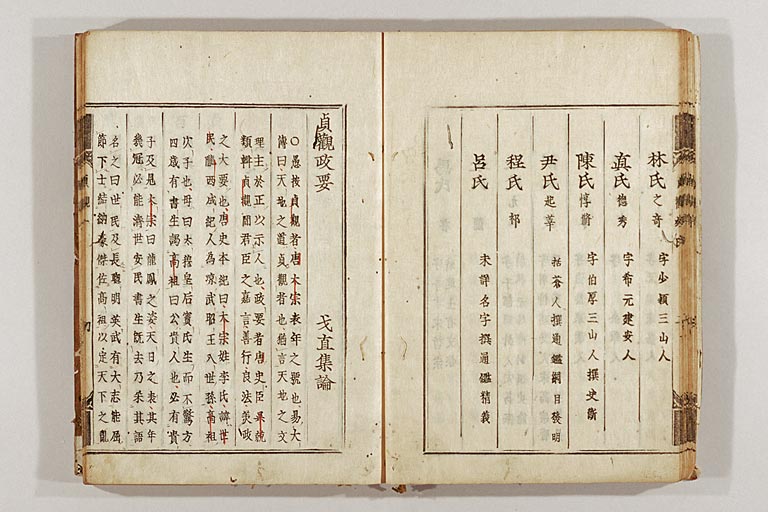 林氏 之奇 字少穎三山人
真氏 德秀 字希元建安人
陳氏 惇脩 字伯厚三山人撰史斷
尹氏 起莘 括蒼人撰通鑑綱目發明
程氏 祁
呂氏 未詳名字撰通鑑精義
貞觀政要 戈直集論
○愚按貞觀者唐太宗表年之號也易大
傳曰天地之道貞觀者也猶言天地之文
理主於正以示人也政要者唐史臣吳兢
類輯貞觀間君臣之嘉言善行良法美政
之大要也唐史本紀曰太宗姓李氏諱世
民隴西成紀人為凉武昭王八世孫高祖
次子也母曰太穆皇后竇氏生而不驚方
四歲有書生謁高祖曰公貴人也必有貴
子及見太宗曰龍鳳之姿天日之表其年
幾冠必能濟世安民書生既去乃采其語
名之曰世民及長聰明英武有大志能屈
節下士結納豪傑佐高祖以定天下之亂
貞觀